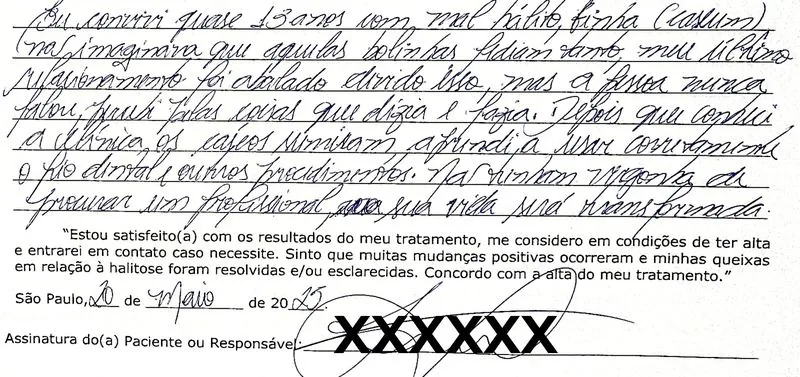 Eu convivi quase 13 anos com mal hálito, tinha (caseum)
não imaginava que aquelas bolinhas fediam tanto, meu último
relacionamento foi abalado devido isso, mas a pessoa nunca
falou, percebi pelas coisas que dizia e fazia. Depois que conheci
a clínica os cáseos sumiram, aprendi a usar corretamente
o fio dental e outros procedimentos. Não tenham vergonha de
procurar um profissional, sua vida será transformada.
"Estou satisfeito(a) com os resultados do meu tratamento, me considero em condições de ter alta
e entrarei em contato caso necessite. Sinto que muitas mudanças positivas ocorreram e minhas queixas
em relação à halitose foram resolvidas e/ou esclarecidas. Concordo com a alta do meu tratamento."
São Paulo, 20 de Maio de 2025.
Assinatura do(a) Paciente ou Responsável: XXXXXX